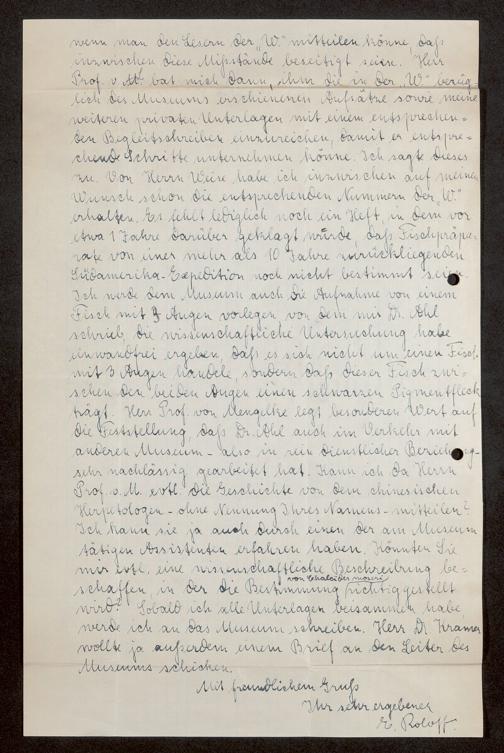 wenn man den Lesern der „W." mitteilen könne, daß
inzwischen diese Mißstände beseitigt seien. Herr
Prof. v. M. bat mich dann, ihm die in der „W." bezüg-
lich des Museums erschienenen Aufsätze sowie meine
weiteren privaten Unterlagen mit einem entsprechen-
den Begleitschreiben einzureichen, damit er entspre-
chende Schritte unternehmen könne. Ich sagte dieses
zu. Von Herrn Weise habe ich inzwischen auf meinen
Wunsch schon die entsprechenden Nummern der „W."
erhalten. Es fehlt lediglich noch ein Heft, in dem vor
etwa 1 Jahre darüber geklagt wurde, daß Fischpräpa-
rate von einer mehr als 10 Jahre zurückliegenden
Südamerika-Expedition noch nicht bestimmt seien.
Ich werde dem Museum auch die Aufnahme von einem
Fisch mit 3 Augen vorlegen von dem mir Dr. Ahl
schrieb, die wissenschaftliche Untersuchung habe
einwandfrei ergeben, daß es sich nicht um einen Fisch
mit 3 Augen handele, sondern daß dieser Fisch zwi-
schen den beiden Augen einen schwarzen Pigmentfleck
trägt. Herr Prof. von Mengelke legt besonderen Wert auf
die Feststellung, daß Dr. Ahl auch im Verkehr mit
anderen Museum - also in rein dienstlicher Beziehung-
sehr nachlässig gearbeitet hat. Kann ich da Herrn
Prof. v. M. evtl. die Geschichte von dem chinesischen
Herpetologen - ohne Nennung Ihres Namens - mitteilen?
Ich kann sie ja auch durch einen der am Museum
tätigen Assistenten erfahren haben. Könnten Sie
mir evtl. eine wissenschaftliche Beschreibung be-
schaffen, in der die Bestimmung richtiggestellt
von
wird? Sobald ich alle Unterlagen beisammen habe
werde ich an das Museum schreiben. Herr Dr. Kramer
wollte ja außerdem einen Brief an den Leiter des
Museums schicken.
Mit freundlichem Gruß
Ihr sehr ergebener
E. Roloff.